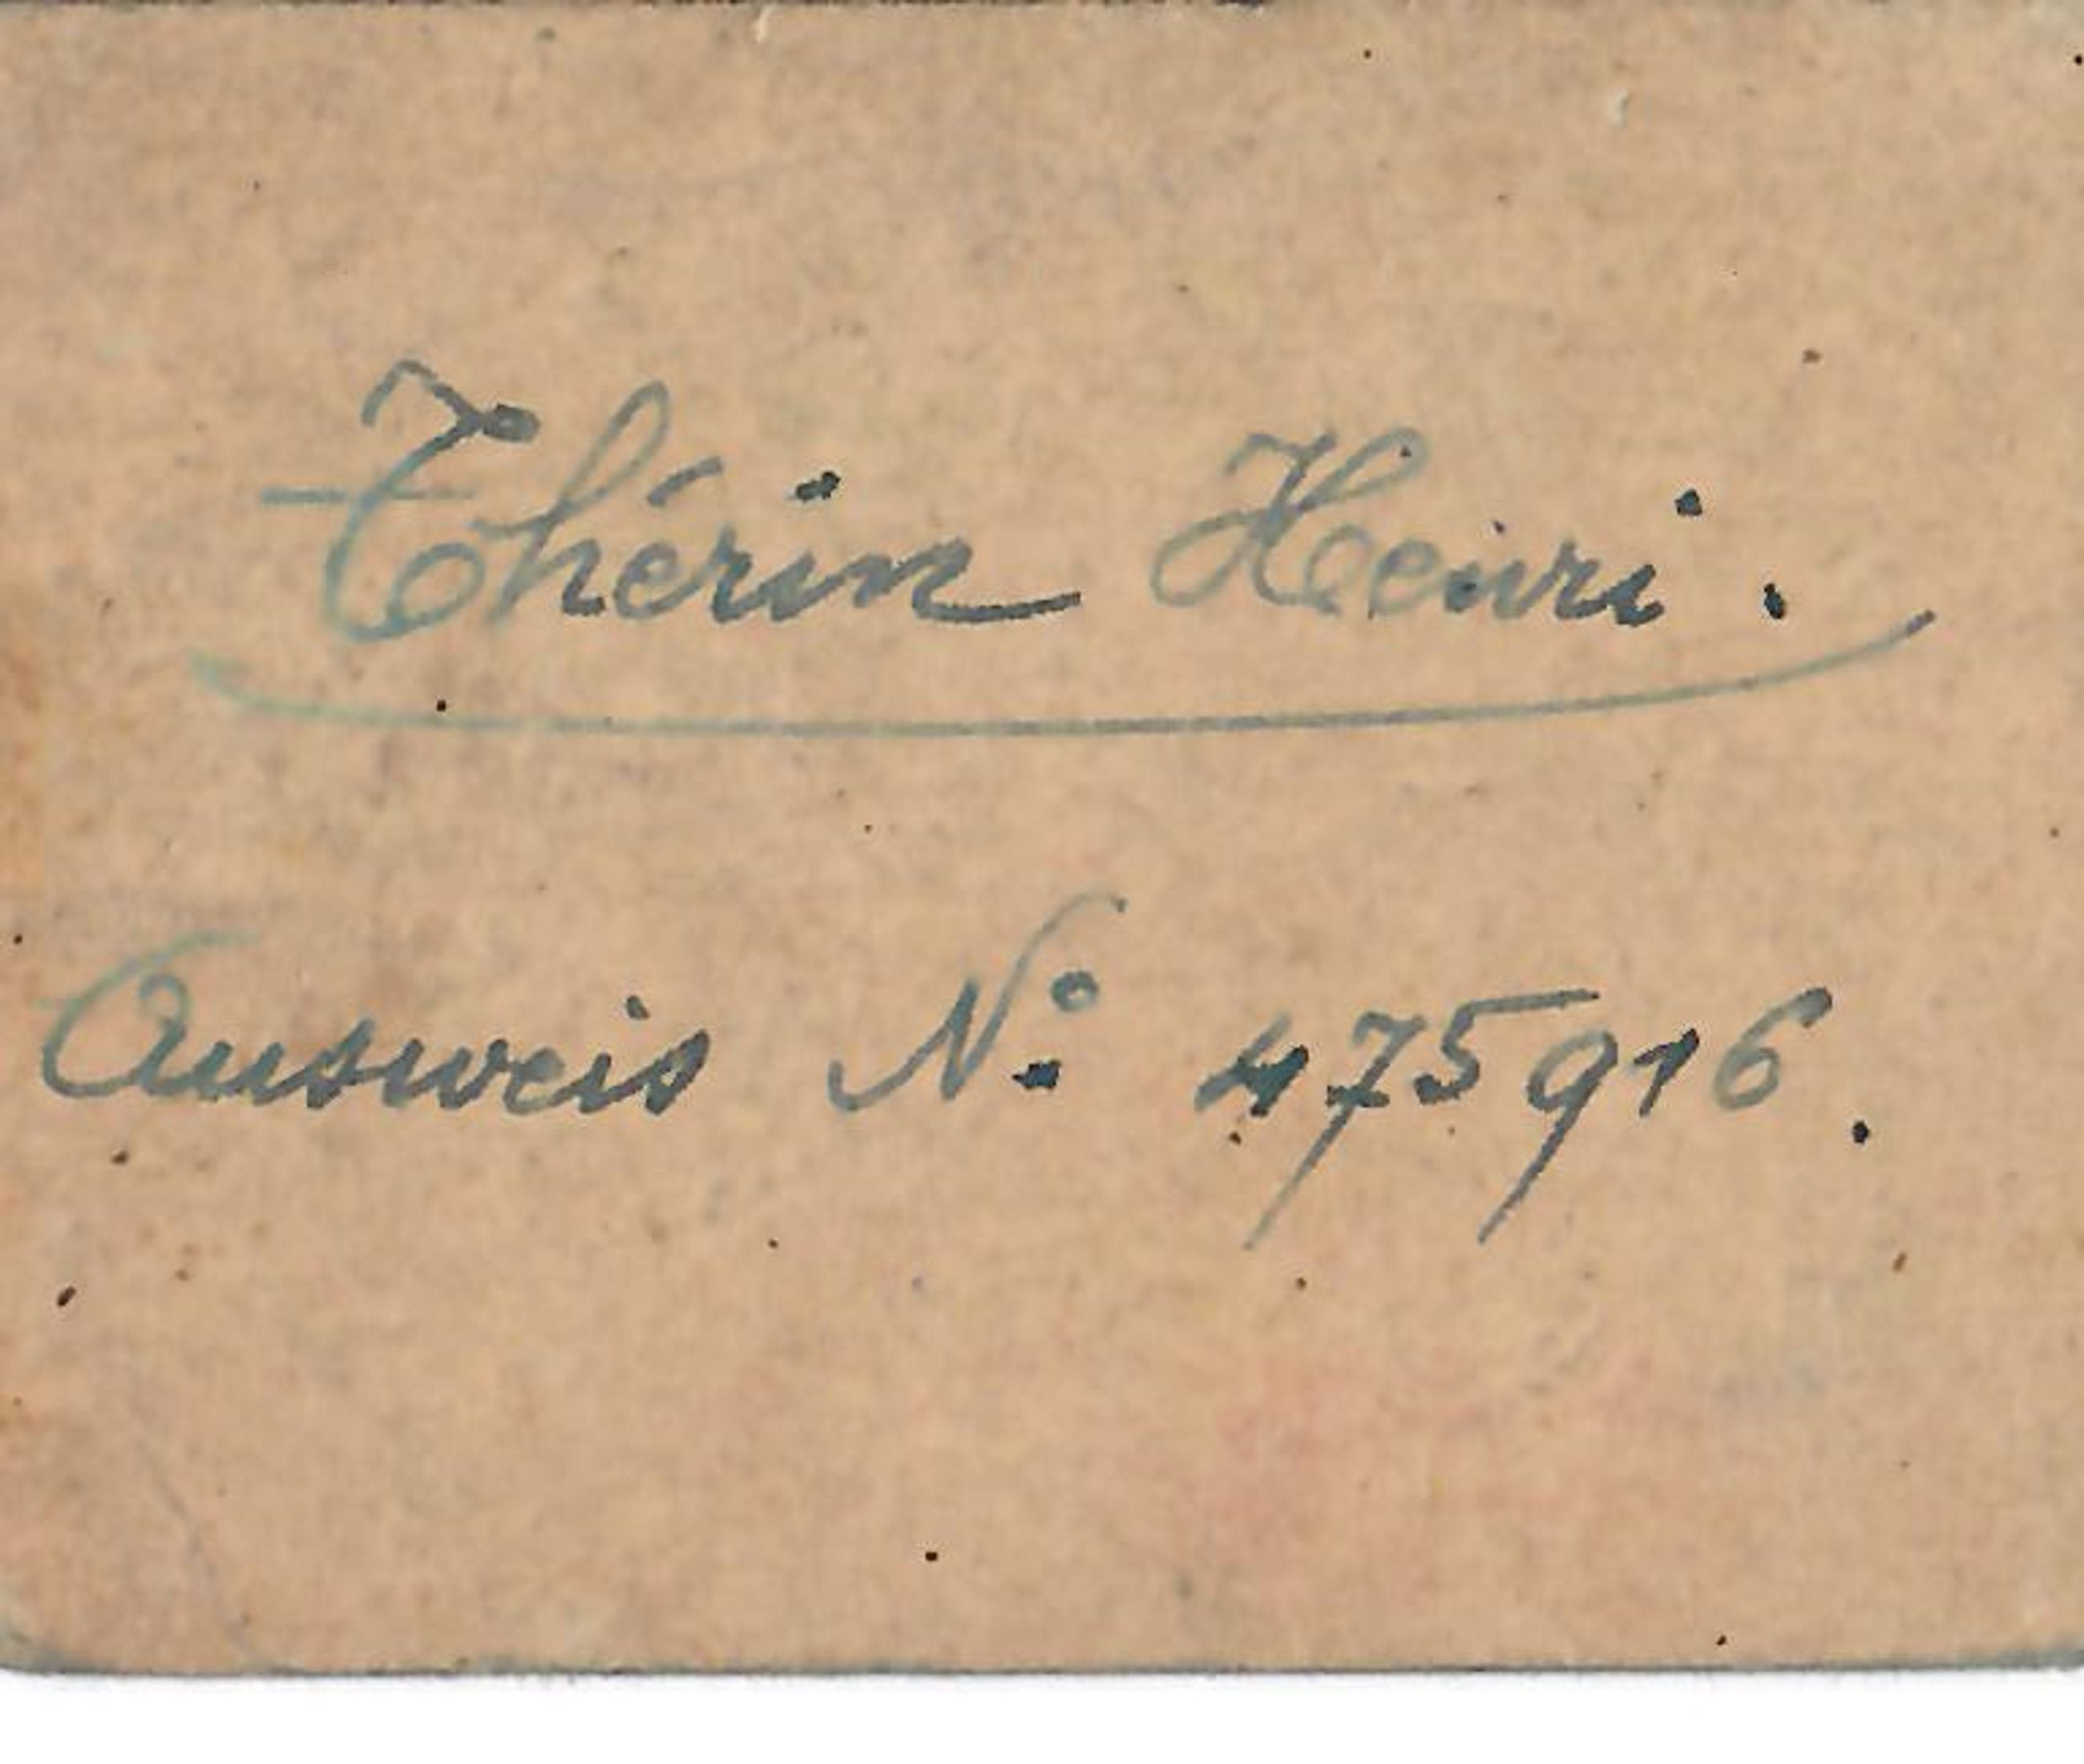 Thérin Henri.
Ausweis N° 475916.